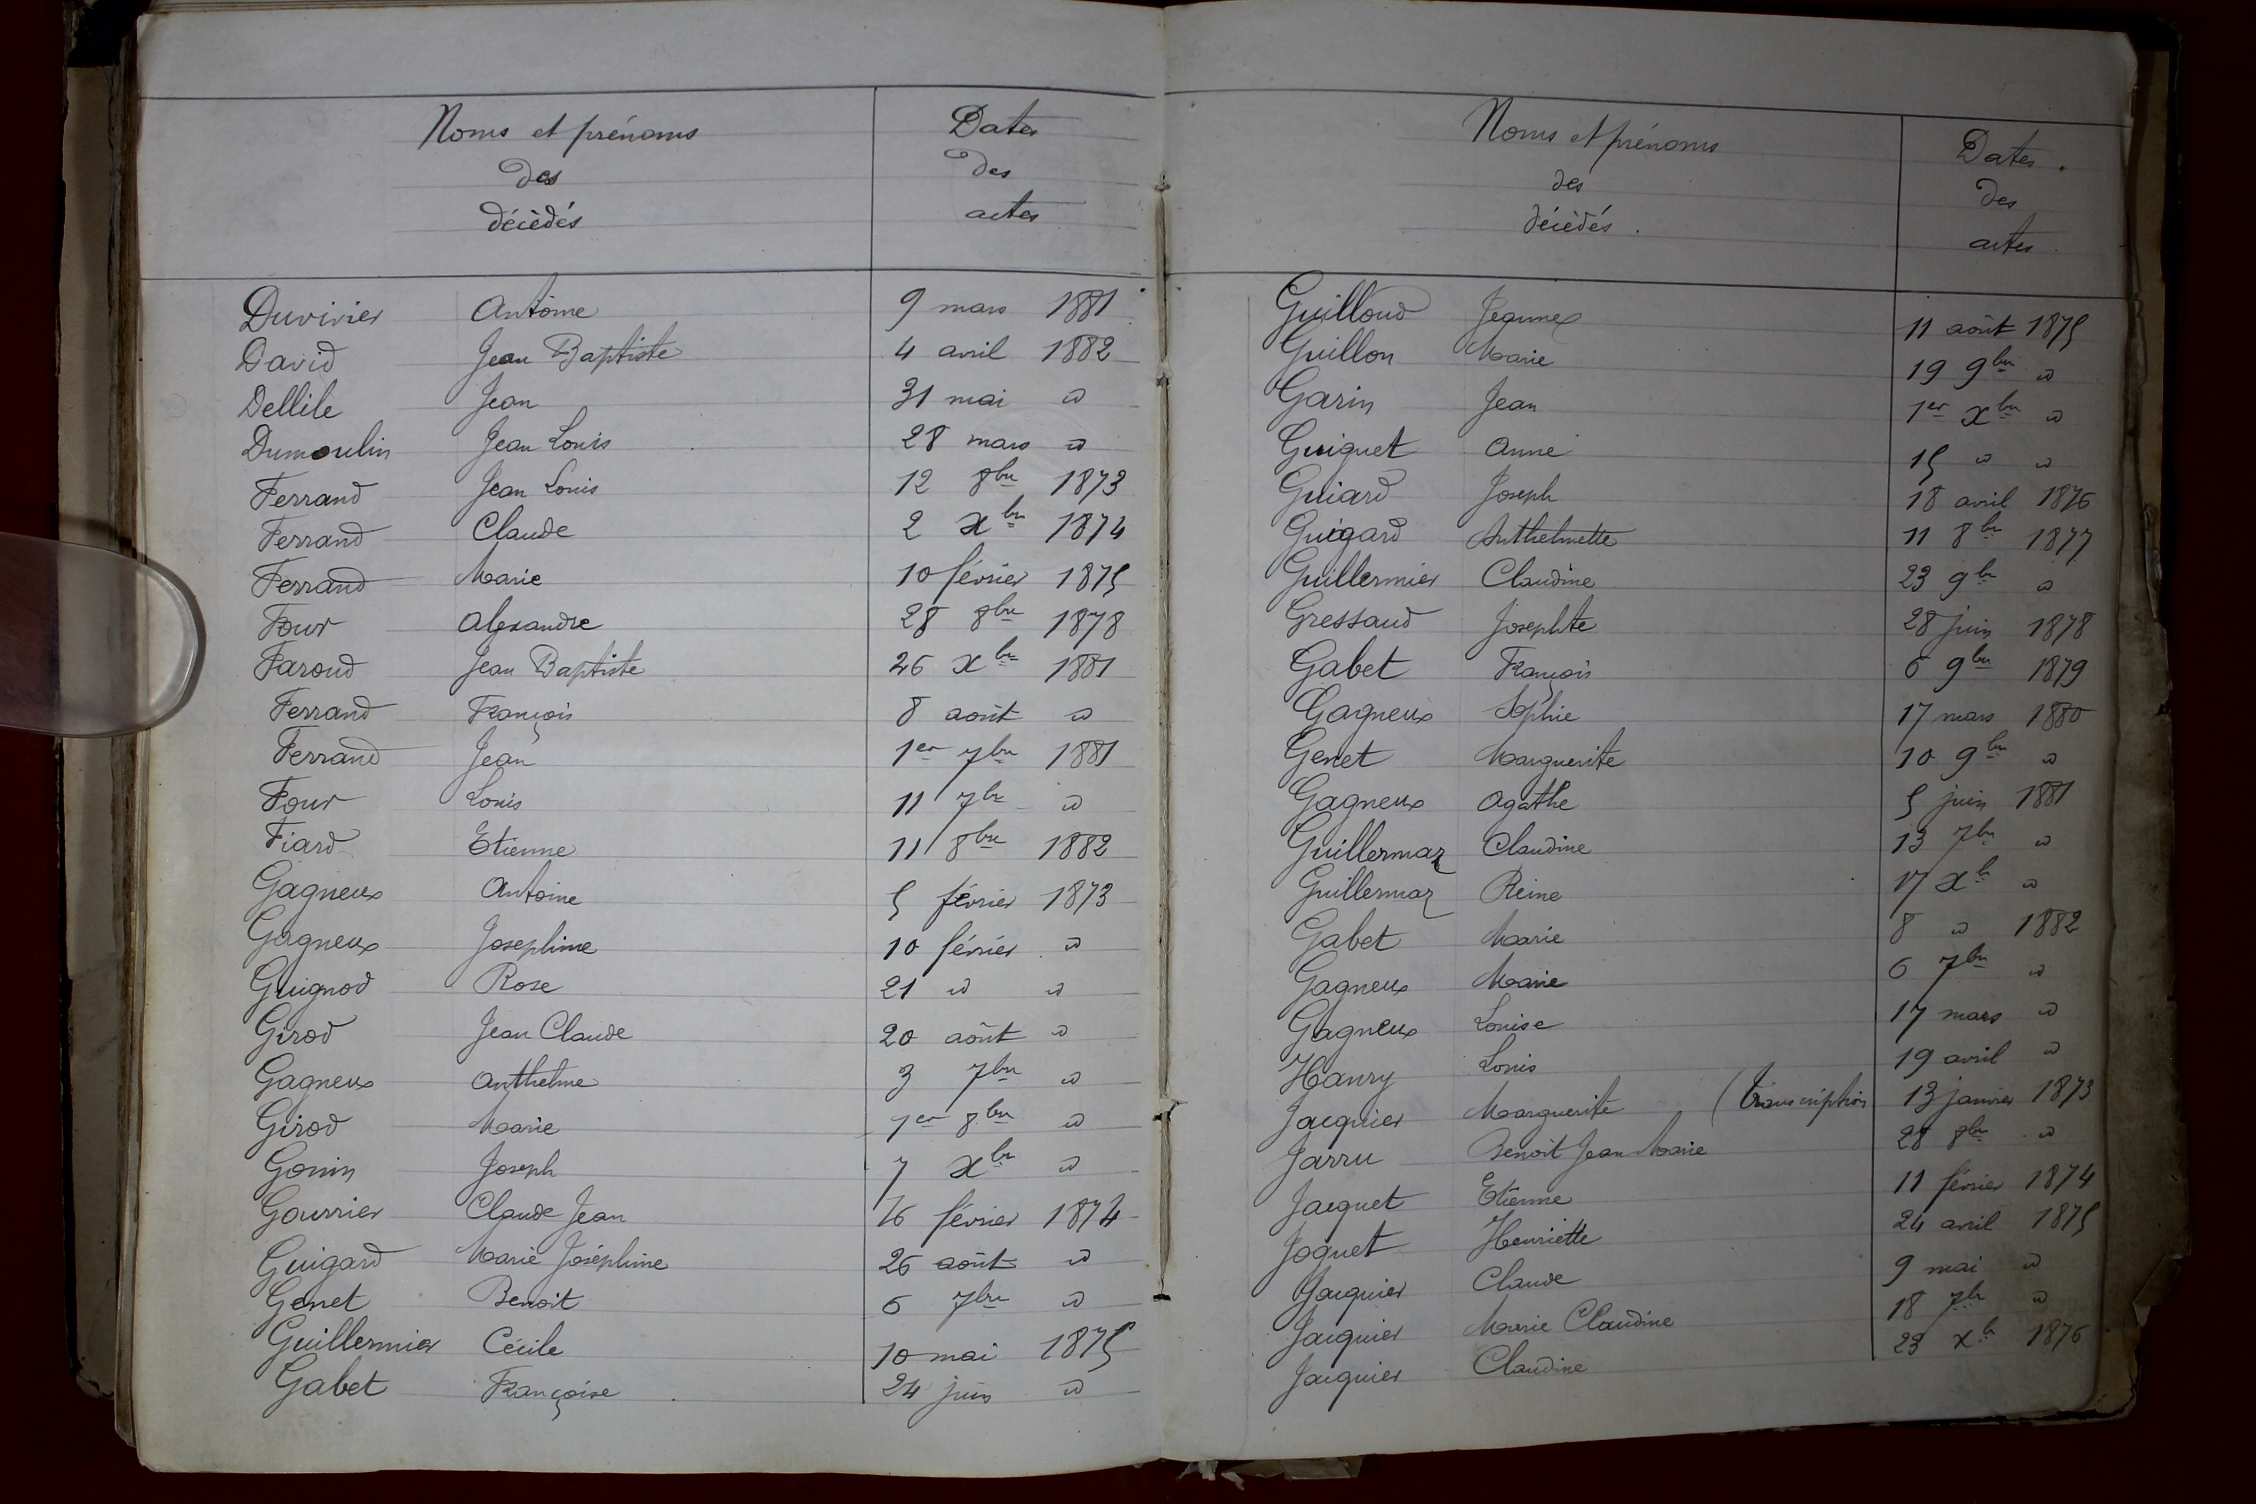 Noms et prénoms
des
décédés
Dates
des
actes
Duvivier Antoine 9 mars 1881
David Jean Baptiste 4 avril 1882
Dellile Jean 31 mai "
Dumoulin Jean Louis 28 mars "
Ferrand Jean Louis 12 8bre 1873
Ferrand Claude 2 Xbre 1874
Ferrand Marie 10 février 1875
Four Alexandre 28 8bre 1878
Faroud Jean Baptiste 26 Xbre 1881
Ferrand François 8 août "
Ferrand Jean 1er 7bre 1881
Four Louis 11 7bre "
Fiard Etienne 11 8bre 1882
Gagneux Antoine 5 février 1873
Gagneux Josephine 10 février "
Guignod Rose 21 " "
Girod Jean Claude 20 août "
Gagneux Anthelme 3 7bre "
Girod Marie 1er 8bre "
Gonin Joseph 7 Xbre "
Gourrier Claude Jean 16 février 1874
Guigard Marie Joséphine 26 août "
Genet Benoit 6 7bre "
Guillermier Cécile 10 mai 1875
Gabet Françoise 24 juin "
Noms et prénoms
des
décédés.
Dates.
des
actes
Guilloud Jeanne 11 août 1875
Guillon Marie 19 9bre "
Garin Jean 1er Xbre "
Guiguet Anne 15 " "
Guiard Joseph 18 avril 1876
Guigard Anthelmette 11 8bre 1877
Guillermier Claudine 23 9bre "
Gressaud Josephte 28 juin 1878
Gabet François 6 9bre 1879
Gagneux Sophie 17 mars 1880
Genet Marguerite 10 9bre "
Gagneux Agathe 5 juin 1881
Guillermaz Claudine 13 7bre "
Guillermaz Reine 17 Xb "
Gabet Marie 8 " 1882
Gagneux Marie 6 7bre "
Gagneux Louise 17 mars "
Hanry Louis 19 avril "
Jacquier Marguerite (transcription 13 janvier 1873
Jarru Benoit Jean Marie 28 8bre "
Jacquet Etienne 11 février 1874
Joguet Henriette 24 avril 1875
Jacquier Claude 9 mai "
Jacquier Marie Claudine 18 7bre "
Jacquier Claudine 23 Xb 1876